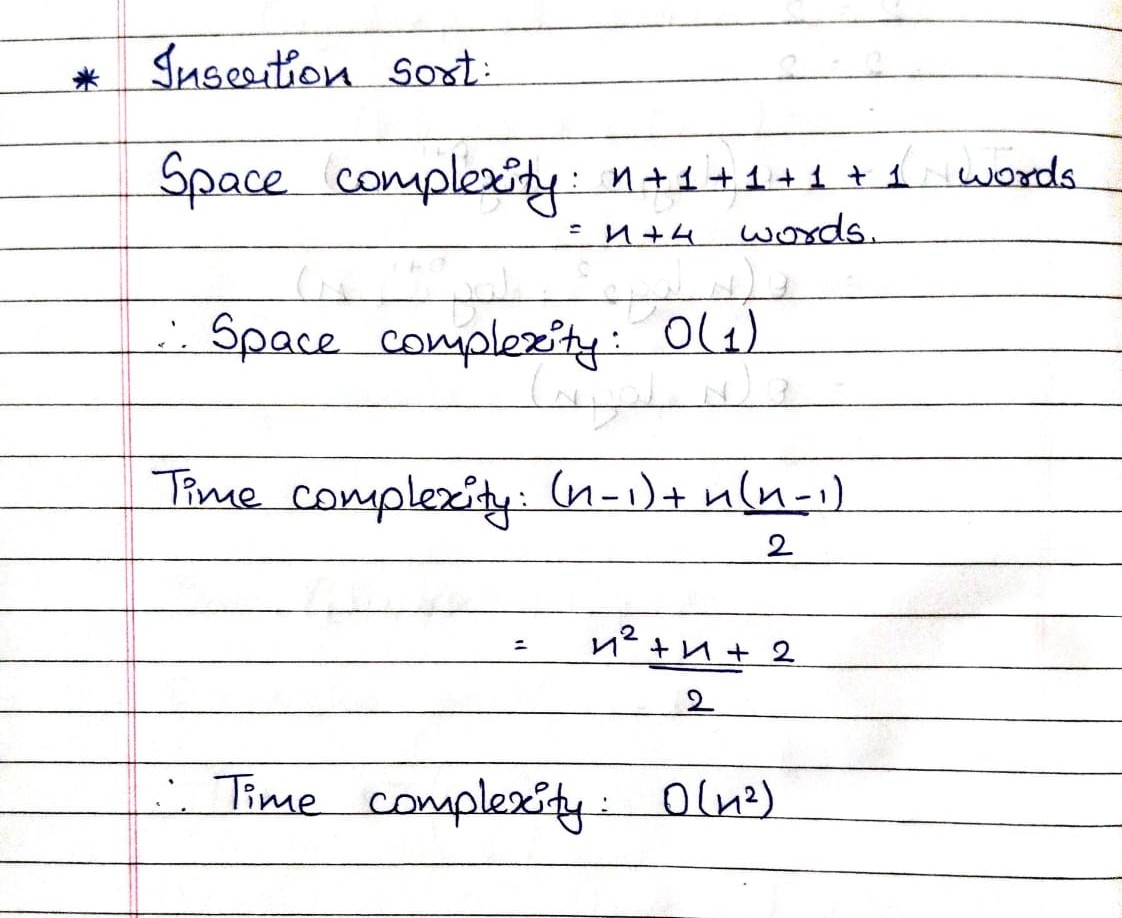 * Insertion sort:
Space complexity: n+1+1+1+1 words
= n+4 words.
∴ Space complexity: O(1)
Time complexity: (n-1)+n(n-1)
2
= n² + n + 2
2
∴ Time complexity: O(n²)